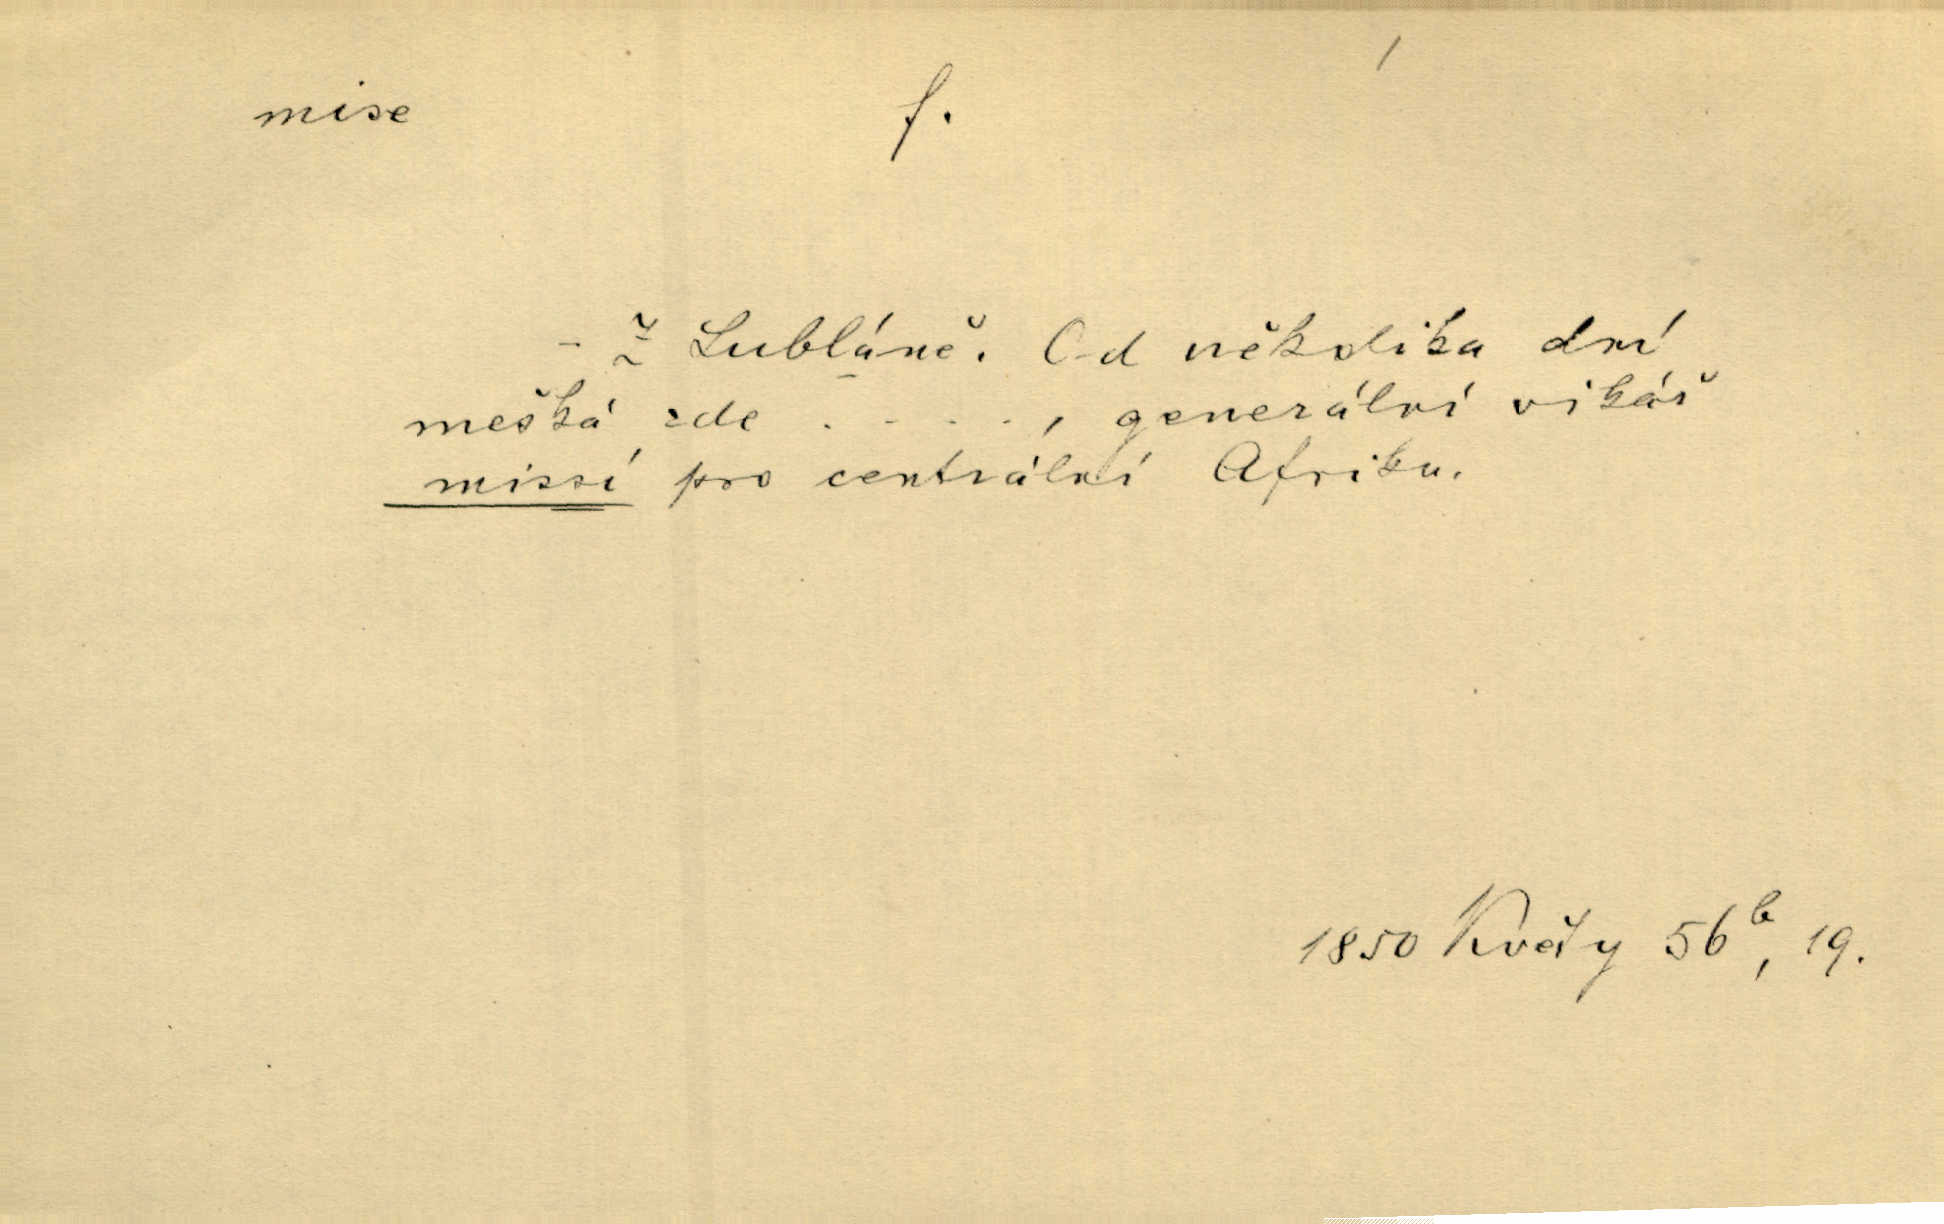 mise f.
- Z Lubláně. Od několika dní
mešká zde . - - -, generální vikář
missí pro centrální Afriku.
1850 Květy 56b, 19.